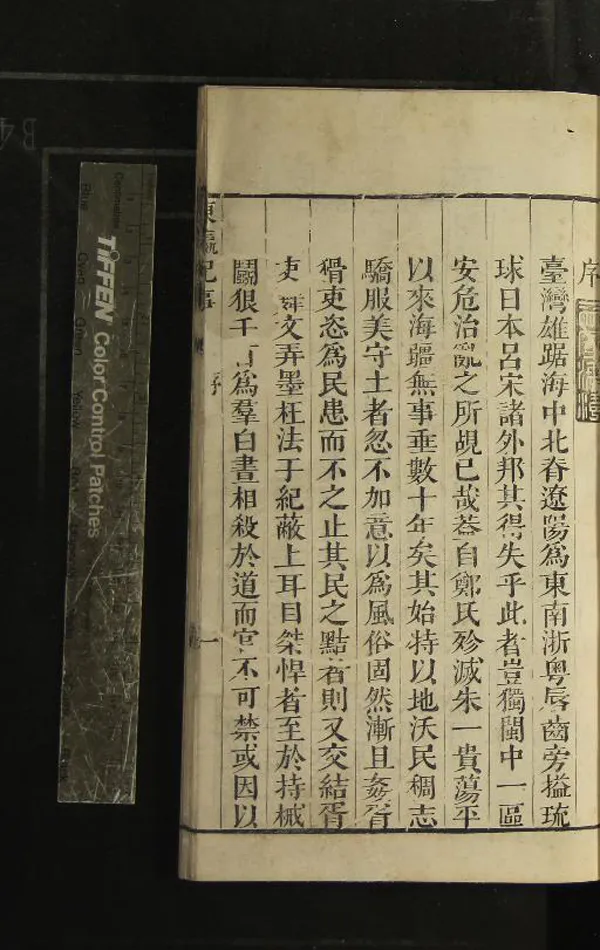 序
臺灣雄踞海中北脊遼陽爲東南浙粵唇齒旁搤琉
球日本呂宋諸外邦其得失乎此者豈獨閩中一區
安危治亂之所覘已哉葢自鄭氏殄滅朱一貴蕩平
以來海疆無事垂數十年矣其始特以地沃民稠志
驕服美守土者忽不加意以爲風俗固然漸且姦胥
猾吏恣爲民患而不之止其民之黠者則又交結胥
吏舞文弄墨枉法于紀蔽上耳目桀悍者至於持械
鬭狠千百爲羣白晝相殺於道而官不可禁或因以
東瀛紀事
序
一
TIFFEN Color Control Patches